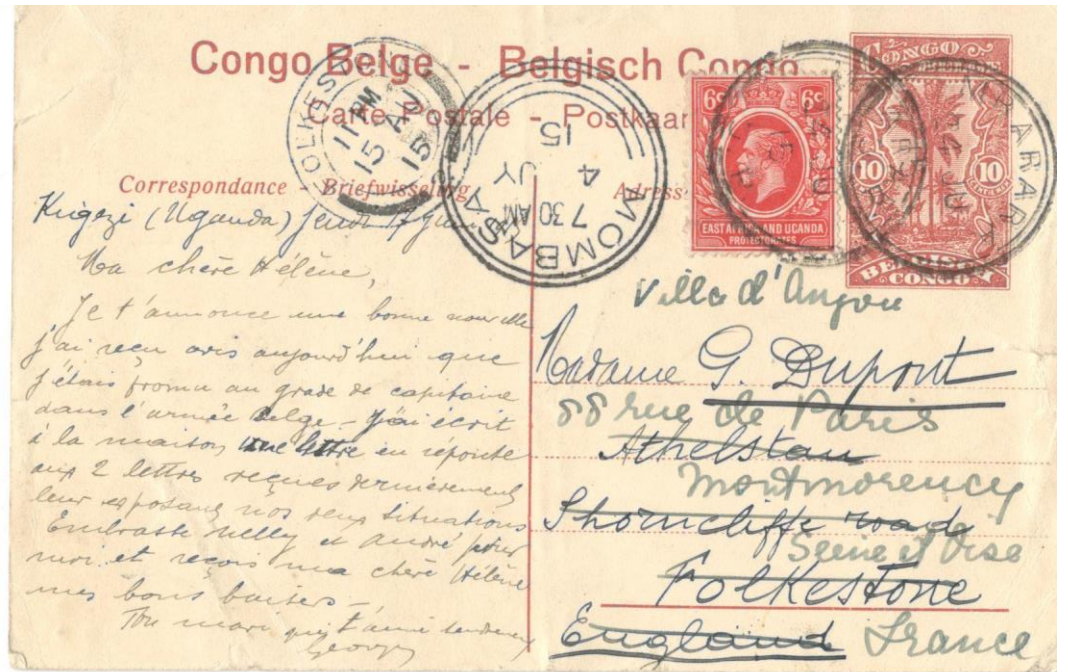 Congo Belge - Belgisch Congo
Carte Postale - Postkaar
Correspondance - Briefwisseling
Adress
CONGO
10 10
CENTIMES
BELGISCH
CONGO
6c 6c
EAST AFRICA AND UGANDA
PROTECTORATES
FOLKESTONE
11 PM
15 AU
15
MOMBASA
7 30 AM
4 JY
15
MBARARA
Kigezi (Uganda) Jeudi 17 Juin
Ma chère Hélène,
Je t'annonce une bonne nouvelle
j'ai reçu avis aujourd'hui que
j'étais promu au grade de capitaine
dans l'armée belge - j'ai écrit
à la maison une lettre en réponse
aux 2 lettres reçues dernièrement
leur exposant nos deux situations
Embrasse Nelly et André pour
moi et reçois ma chère Hélène
mes bons baisers -
Ton mari qui t'aime
Georges
Villa d'Anjou
Madame G. Dupont
88 rue de Paris
Athelstan
Montmorency
Shorncliffe road
Seine et Oise
Folkestone
England France